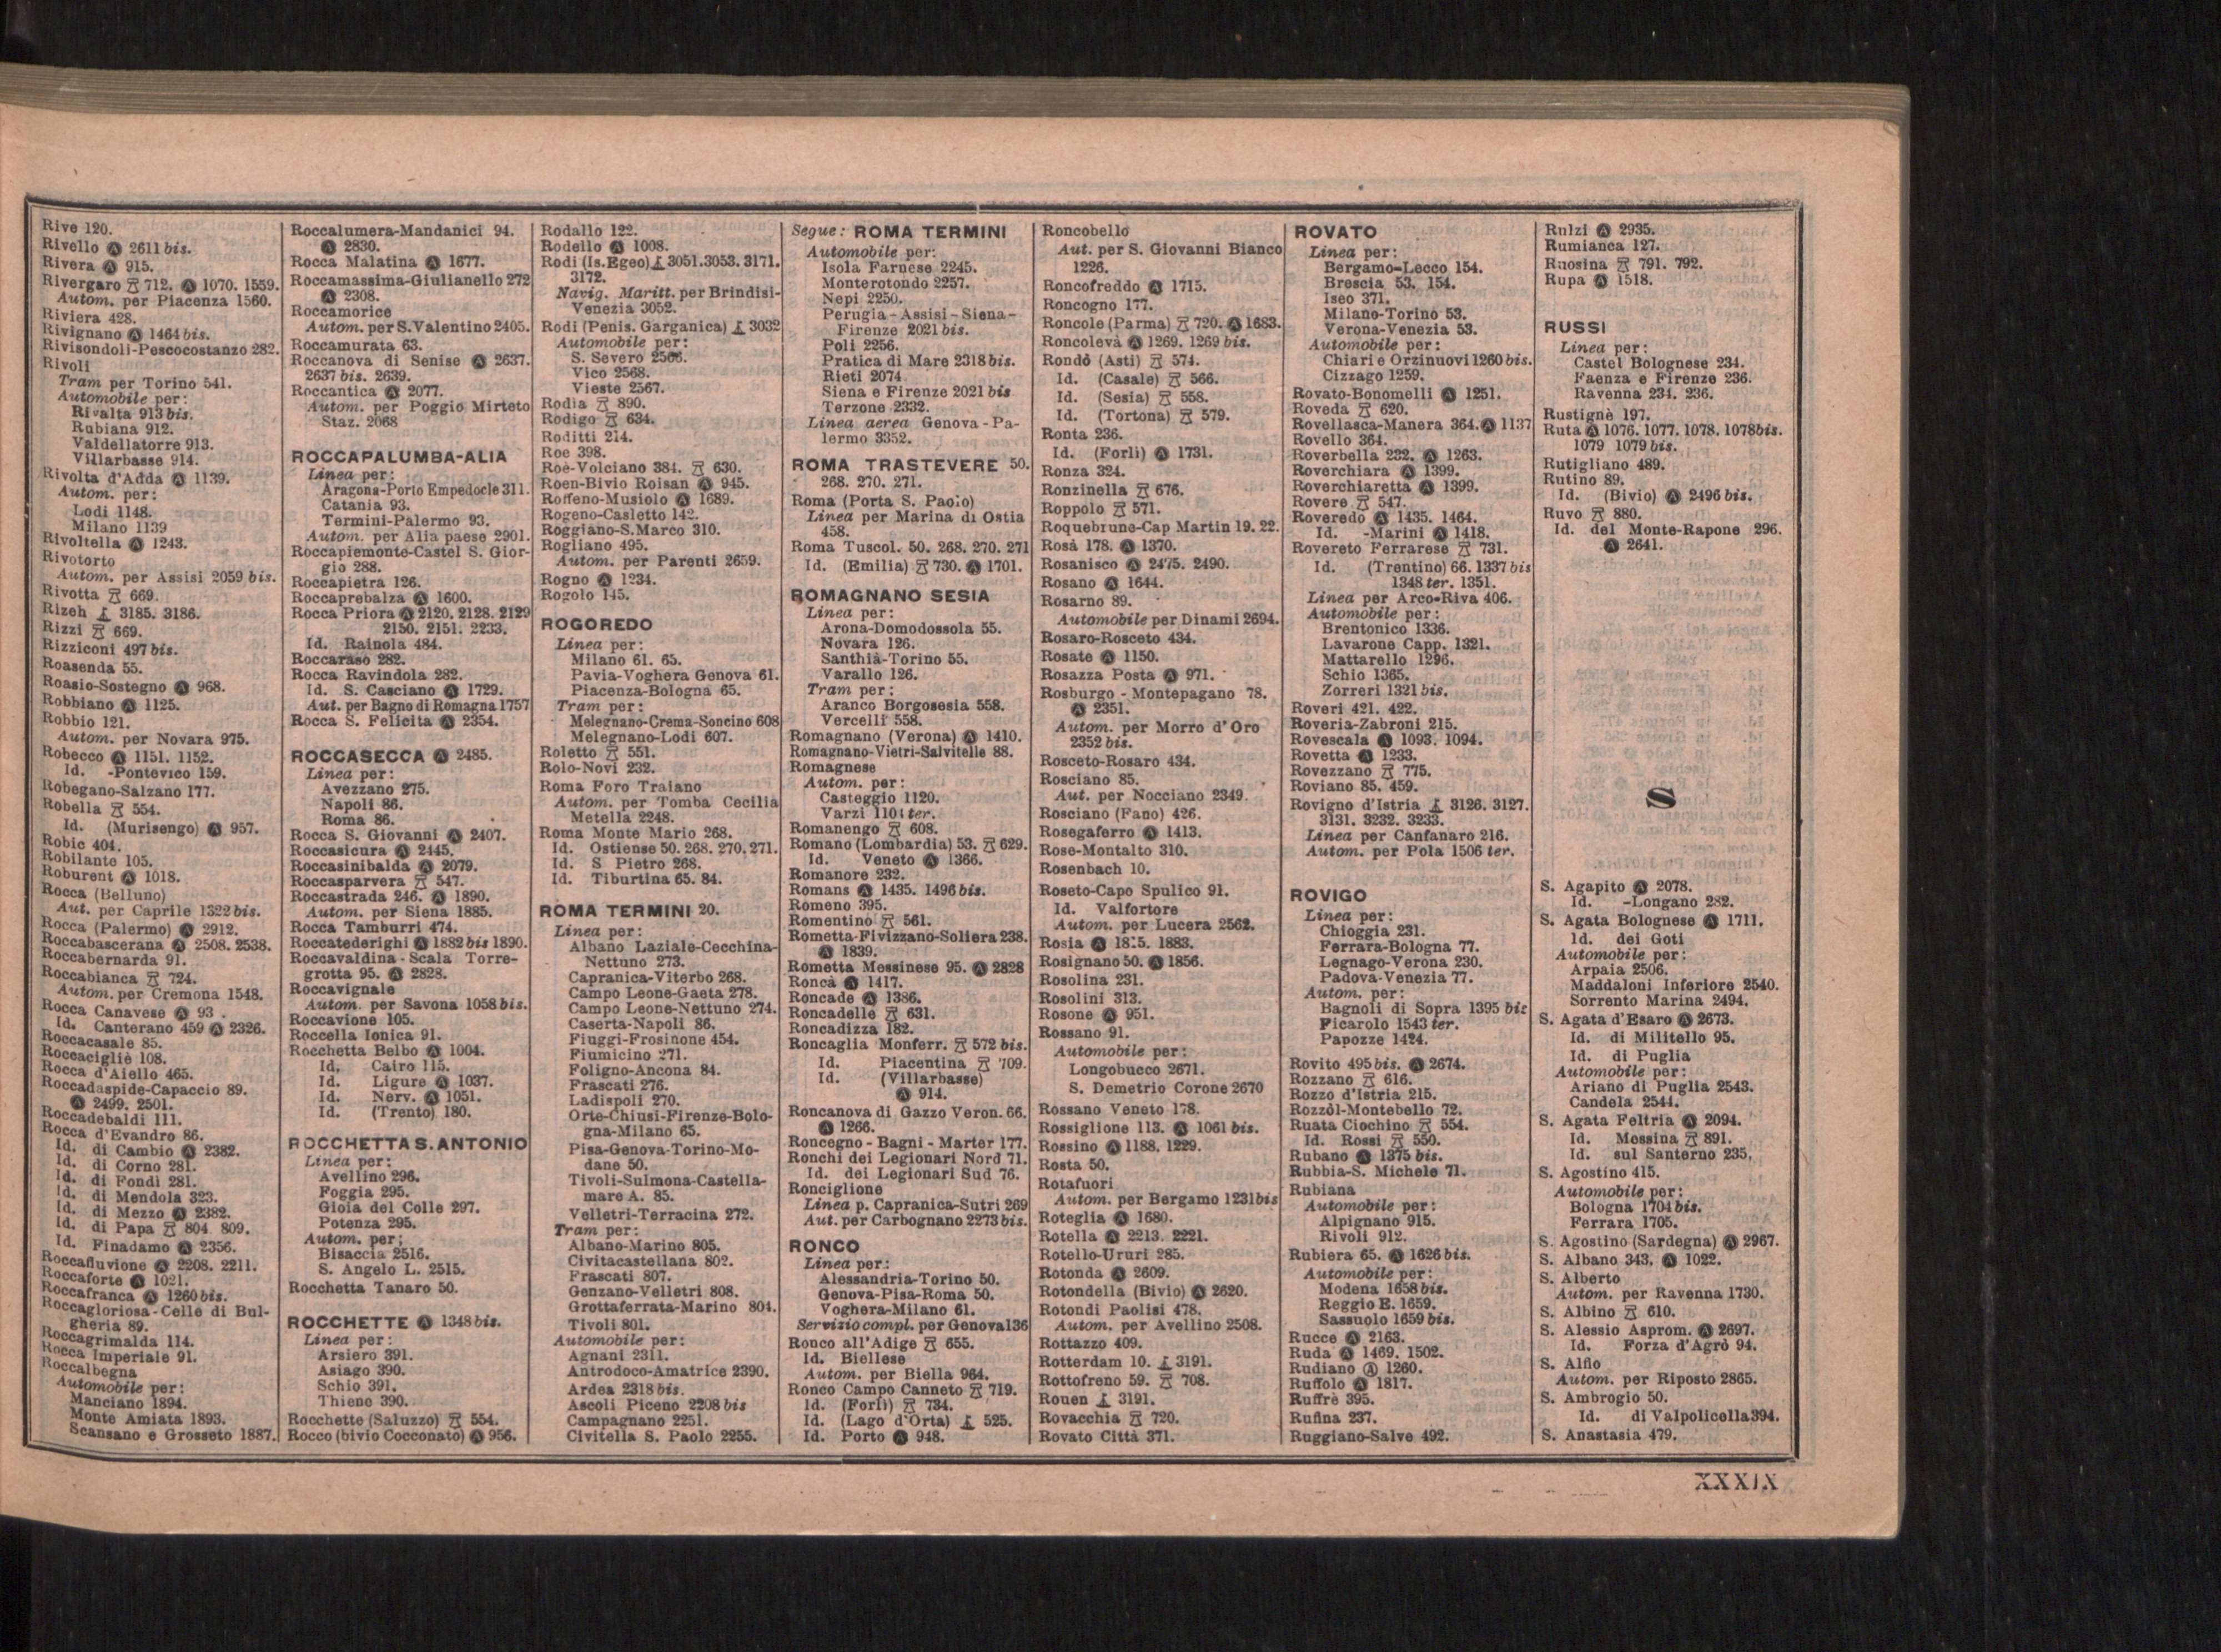 Rive 120.
Rivello Ⓐ 2611 bis.
Rivera Ⓐ 915.
Rivergaro 712. Ⓐ 1070. 1559.
Autom. per Piacenza 1560.
Riviera 428.
Rivignano Ⓐ 1464 bis.
Rivisondoli-Pescocostanzo 282.
Rivoli
Tram per Torino 541.
Automobile per:
Rivalta 913 bis.
Rubiana 912.
Valdellatorre 913.
Villarbasse 914.
Rivolta d'Adda Ⓐ 1139.
Autom. per:
Lodi 1148.
Milano 1139
Rivoltella Ⓐ 1243.
Rivotorto
Autom. per Assisi 2059 bis.
Rivotta 669.
Rizeh 3185. 3186.
Rizzi 669.
Rizziconi 497 bis.
Roasenda 55.
Roasio-Sostegno Ⓐ 968.
Robbiano Ⓐ 1125.
Robbio 121.
Autom. per Novara 975.
Robecco Ⓐ 1151. 1152.
Id. -Pontevico 159.
Robegano-Salzano 177.
Robella 554.
Id. (Murisengo) Ⓐ 957.
Robic 404.
Robilante 105.
Roburent Ⓐ 1018.
Rocca (Belluno)
Aut. per Caprile 1322 bis.
Rocca (Palermo) Ⓐ 2912.
Roccabascerana Ⓐ 2508. 2538.
Roccabernarda 91.
Roccabianca 724.
Autom. per Cremona 1548.
Rocca Canavese Ⓐ 93 .
Id. Canterano 459 Ⓐ 2326.
Roccacasale 85.
Roccaciglié 108.
Rocca d'Aiello 465.
Roccadaspide-Capaccio 89.
Ⓐ 2499. 2501.
Roccadebaldi 111.
Rocca d'Evandro 86.
Id. di Cambio Ⓐ 2382.
Id. di Corno 281.
Id. di Fondi 281.
Id. di Mendola 323.
Id. di Mezzo Ⓐ 2382.
Id. di Papa 804. 809.
Id. Finadamo Ⓐ 2356.
Roccafluvione Ⓐ 2208. 2211.
Roccaforte Ⓐ 1021.
Roccafranca Ⓐ 1260 bis.
Roccagloriosa-Celle di Bul-
gheria 89.
Roccagrimalda 114.
Rocca Imperiale 91.
Roccalbegna
Automobile per:
Manciano 1894.
Monte Amiata 1893.
Scansano e Grosseto 1887.
Roccalumera-Mandanici 94.
Ⓐ 2830.
Rocca Malatina Ⓐ 1677.
Roccamassima-Giulianello 272
Ⓐ 2308.
Roccamorice
Autom. per S. Valentino 2405.
Roccamurata 63.
Roccanova di Senise Ⓐ 2637.
2637 bis. 2639.
Roccantica Ⓐ 2077.
Autom. per Poggio Mirteto
Staz. 2068
ROCCAPALUMBA-ALIA
Linea per:
Aragona-Porto Empedocle 311.
Catania 93.
Termini-Palermo 93.
Autom. per Alia paese 2901.
Roccapiemonte-Castel S. Gior-
gio 288.
Roccapietra 126.
Roccaprebalza Ⓐ 1600.
Rocca Priora Ⓐ 2120. 2128. 2129
2150. 2151. 2233.
Id. Rainola 484.
Roccaraso 282.
Rocca Ravindola 282.
Id. S. Casciano Ⓐ 1729.
Aut. per Bagno di Romagna 1757
Rocca S. Felicita Ⓐ 2354.
ROCCASECCA Ⓐ 2485.
Linea per:
Avezzano 275.
Napoli 86.
Roma 86.
Rocca S. Giovanni Ⓐ 2407.
Roccasicura Ⓐ 2445.
Roccasinibalda Ⓐ 2079.
Roccasparvera 547.
Roccastrada 246. Ⓐ 1890.
Autom. per Siena 1885.
Rocca Tamburri 474.
Roccatederighi Ⓐ 1882 bis 1890.
Roccavaldina-Scala Torre-
grotta 95. Ⓐ 2828.
Roccavignale
Autom. per Savona 1058 bis.
Roccavione 105.
Roccella Ionica 91.
Rocchetta Belbo Ⓐ 1004.
Id. Cairo 115.
Id. Ligure Ⓐ 1037.
Id. Nerv. Ⓐ 1051.
Id. (Trento) 180.
ROCCHETTA S. ANTONIO
Linea per:
Avellino 296.
Foggia 295.
Gioia del Colle 297.
Potenza 295.
Autom. per:
Bisaccia 2516.
S. Angelo L. 2515.
Rocchetta Tanaro 50.
ROCCHETTE Ⓐ 1348 bis.
Linea per:
Arsiero 391.
Asiago 390.
Schio 391.
Thiene 390.
Rocchette (Saluzzo) 554.
Rocco (bivio Cocconato) Ⓐ 956.
Rodallo 122.
Rodello Ⓐ 1008.
Rodi (Is. Egeo) 3051. 3053. 3171.
3172.
Navig. Maritt. per Brindisi-
Venezia 3052.
Rodi (Penis. Garganica) 3032
Automobile per:
S. Severo 2566.
Vico 2568.
Vieste 2567.
Rodia 890.
Rodigo 634.
Roditti 214.
Roe 398.
Roè-Volciano 384. 630.
Roen-Bivio Roisan Ⓐ 945.
Roffeno-Musiolo Ⓐ 1689.
Rogeno-Casletto 142.
Roggiano-S. Marco 310.
Rogliano 495.
Autom. per Parenti 2659.
Rogno Ⓐ 1234.
Rogolo 145.
ROGOREDO
Linea per:
Milano 61. 65.
Pavia-Voghera Genova 61.
Piacenza-Bologna 65.
Tram per:
Melegnano-Crema-Soncino 608
Melegnano-Lodi 607.
Roletto 551.
Rolo-Novi 232.
Roma Foro Traiano
Autom. per Tomba Cecilia
Metella 2248.
Roma Monte Mario 268.
Id. Ostiense 50. 268. 270. 271.
Id. S Pietro 268.
Id. Tiburtina 65. 84.
ROMA TERMINI 20.
Linea per:
Albano Laziale-Cecchina-
Nettuno 273.
Capranica-Viterbo 268.
Campo Leone-Gaeta 278.
Campo Leone-Nettuno 274.
Caserta-Napoli 86.
Fiuggi-Frosinone 454.
Fiumicino 271.
Foligno-Ancona 84.
Frascati 276.
Ladispoli 270.
Orte-Chiusi-Firenze-Bolo-
gna-Milano 65.
Pisa-Genova-Torino-Mo-
dane 50.
Tivoli-Sulmona-Castella-
mare A. 85.
Velletri-Terracina 272.
Tram per:
Albano-Marino 805.
Civitacastellana 802.
Frascati 807.
Genzano-Velletri 808.
Grottaferrata-Marino 804.
Tivoli 801.
Automobile per:
Agnani 2311.
Antrodoco-Amatrice 2390.
Ardea 2318 bis.
Ascoli Piceno 2208 bis
Campagnano 2251.
Civitella S. Paolo 2255.
Segue: ROMA TERMINI
Automobile per:
Isola Farnese 2245.
Monterotondo 2257.
Nepi 2250.
Perugia-Assisi-Siena-
Firenze 2021 bis.
Poli 2256.
Pratica di Mare 2318 bis.
Rieti 2074
Siena e Firenze 2021 bis
Terzone 2332.
Linea aerea Genova-Pa-
lermo 3352.
ROMA TRASTEVERE 50.
268. 270. 271.
Roma (Porta S. Paolo)
Linea per Marina di Ostia
458.
Roma Tuscol. 50. 268. 270. 271
Id. (Emilia) 730. Ⓐ 1701.
ROMAGNANO SESIA
Linea per:
Arona-Domodossola 55.
Novara 126.
Santhià-Torino 55.
Varallo 126.
Tram per:
Aranco Borgosesia 558.
Vercelli 558.
Romagnano (Verona) Ⓐ 1410.
Romagnano-Vietri-Salvitelle 88.
Romagnese
Autom. per:
Casteggio 1120.
Varzi 1104 ter.
Romanengo 608.
Romano (Lombardia) 53. 629.
Id. Veneto Ⓐ 1366.
Romanore 232.
Romans Ⓐ 1435. 1496 bis.
Romeno 395.
Romentino 561.
Rometta-Fivizzano-Soliera 238.
Ⓐ 1839.
Rometta Messinese 95. Ⓐ 2828
Roncà Ⓐ 1417.
Roncade Ⓐ 1386.
Roncadelle 631.
Roncadizza 182.
Roncaglia Monferr. 572 bis.
Id. Piacentina 709.
Id. (Villarbasse)
Ⓐ 914.
Roncanova di Gazzo Veron. 66.
Ⓐ 1266.
Roncegno-Bagni-Marter 177.
Ronchi dei Legionari Nord 71.
Id. dei Legionari Sud 76.
Ronciglione
Linea p. Capranica-Sutri 269
Aut. per Carbognano 2273 bis.
RONCO
Linea per:
Alessandria-Torino 50.
Genova-Pisa-Roma 50.
Voghera-Milano 61.
Servizio compl. per Genova 136
Ronco all'Adige 655.
Id. Biellese
Autom. per Biella 964.
Ronco Campo Canneto 719.
Id. (Forlì) 734.
Id. (Lago d'Orta) 525.
Id. Porto Ⓐ 948.
Roncobello
Aut. per S. Giovanni Bianco
1226.
Roncofreddo Ⓐ 1715.
Roncogno 177.
Roncole (Parma) 720. Ⓐ 1683.
Roncolevà Ⓐ 1269. 1269 bis.
Rondò (Asti) 574.
Id. (Casale) 566.
Id. (Sesia) 558.
Id. (Tortona) 579.
Ronta 236.
Id. (Forlì) Ⓐ 1731.
Ronza 324.
Ronzinella 676.
Roppolo 571.
Roquebrune-Cap Martin 19. 22.
Rosà 178. Ⓐ 1370.
Rosanisco Ⓐ 2475. 2490.
Rosano Ⓐ 1644.
Rosarno 89.
Automobile per Dinami 2694.
Rosaro-Rosceto 434.
Rosate Ⓐ 1150.
Rosazza Posta Ⓐ 971.
Rosburgo-Montepagano 78.
Ⓐ 2351.
Autom. per Morro d'Oro
2352 bis.
Rosceto-Rosaro 434.
Rosciano 85.
Aut. per Nocciano 2349.
Rosciano (Fano) 426.
Rosegaferro Ⓐ 1413.
Rose-Montalto 310.
Rosenbach 10.
Roseto-Capo Spulico 91.
Id. Valfortore
Autom. per Lucera 2562.
Rosia Ⓐ 1883.
Rosignano 50. Ⓐ 1856.
Rosolina 231.
Rosolini 313.
Rosone Ⓐ 951.
Rossano 91.
Automobile per:
Longobucco 2671.
S. Demetrio Corone 2670
Rossano Veneto 178.
Rossiglione 113. Ⓐ 1061 bis.
Rossino Ⓐ 1188. 1229.
Rosta 50.
Rotafuori
Autom. per Bergamo 1231 bis
Roteglia Ⓐ 1680.
Rotella Ⓐ 2213. 2221.
Rotello-Ururi 285.
Rotonda Ⓐ 2609.
Rotondella (Bivio) Ⓐ 2620.
Rotondi Paolisi 478.
Autom. per Avellino 2508.
Rottazzo 409.
Rotterdam 10. 3191.
Rottofreno 59. 708.
Rouen 3191.
Rovacchia 720.
Rovato Città 371.
ROVATO
Linea per:
Bergamo-Lecco 154.
Brescia 53. 154.
Iseo 371.
Milano-Torino 53.
Verona-Venezia 53.
Automobile per:
Chiari e Orzinuovi 1260 bis.
Cizzago 1259.
Rovato-Bonomelli Ⓐ 1251.
Roveda 620.
Rovellasca-Manera 364. Ⓐ 1137
Rovello 364.
Roverbella 232. Ⓐ 1263.
Roverchiara Ⓐ 1399.
Roverchiaretta Ⓐ 1399.
Rovere 547.
Roveredo Ⓐ 1435. 1464.
Id. -Marini Ⓐ 1418.
Rovereto Ferrarese 731.
Id. (Trentino) 66. 1337 bis
1348 ter. 1351.
Linea per Arco-Riva 406.
Automobile per:
Brentonico 1336.
Lavarone Capp. 1321.
Mattarello 1296.
Schio 1365.
Zorreri 1321 bis.
Roveri 421. 422.
Roveria-Zabroni 215.
Rovescala Ⓐ 1093. 1094.
Rovetta Ⓐ 1233.
Rovezzano 775.
Roviano 85. 459.
Rovigno d'Istria 3126. 3127.
3131. 3232. 3233.
Linea per Canfanaro 216.
Autom. per Pola 1506 ter.
ROVIGO
Linea per:
Chioggia 231.
Ferrara-Bologna 77.
Legnago-Verona 230.
Padova-Venezia 77.
Autom. per:
Bagnoli di Sopra 1395 bis
Ficarolo 1543 ter.
Papozze 1424.
Rovito 495 bis. Ⓐ 2674.
Rozzano 616.
Rozzo d'Istria 215.
Rozzòl-Montebello 72.
Ruata Ciochino 554.
Id. Rossi 550.
Rubano Ⓐ 1375 bis.
Rubbia-S. Michele 71.
Rubiana
Automobile per:
Alpignano 915.
Rivoli 912.
Rubiera 65. Ⓐ 1626 bis.
Automobile per:
Modena 1658 bis.
Reggio E. 1659.
Sassuolo 1659 bis.
Rucce Ⓐ 2163.
Ruda Ⓐ 1469. 1502.
Rudiano Ⓐ 1260.
Ruffolo Ⓐ 1817.
Ruffrè 395.
Rufina 237.
Ruggiano-Salve 492.
Rulzi Ⓐ 2935.
Rumianca 127.
Ruosina 791. 792.
Rupa Ⓐ 1518.
RUSSI
Linea per:
Castel Bolognese 234.
Faenza e Firenze 236.
Ravenna 234. 236.
Rustignè 197.
Ruta Ⓐ 1076. 1077. 1078. 1078 bis.
1079 1079 bis.
Rutigliano 489.
Rutino 89.
Id. (Bivio) Ⓐ 2496 bis.
Ruvo 880.
Id. del Monte-Rapone 296.
Ⓐ 2641.
S
S. Agapito Ⓐ 2078.
Id. -Longano 282.
S. Agata Bolognese Ⓐ 1711.
Id. dei Goti
Automobile per:
Arpaia 2506.
Maddaloni Inferiore 2540.
Sorrento Marina 2494.
S. Agata d'Esaro Ⓐ 2673.
Id. di Militello 95.
Id. di Puglia
Automobile per:
Ariano di Puglia 2543.
Candela 2544.
S. Agata Feltria Ⓐ 2094.
Id. Messina 891.
Id. sul Santerno 235.
S. Agostino 415.
Automobile per:
Bologna 1704 bis.
Ferrara 1705.
S. Agostino (Sardegna) Ⓐ 2967.
S. Albano 343. Ⓐ 1022.
S. Alberto
Autom. per Ravenna 1730.
S. Albino 610.
S. Alessio Asprom. Ⓐ 2697.
Id. Forza d'Agrò 94.
S. Alfio
Autom. per Riposto 2865.
S. Ambrogio 50.
Id. di Valpolicella 394.
S. Anastasia 479.
XXXIX